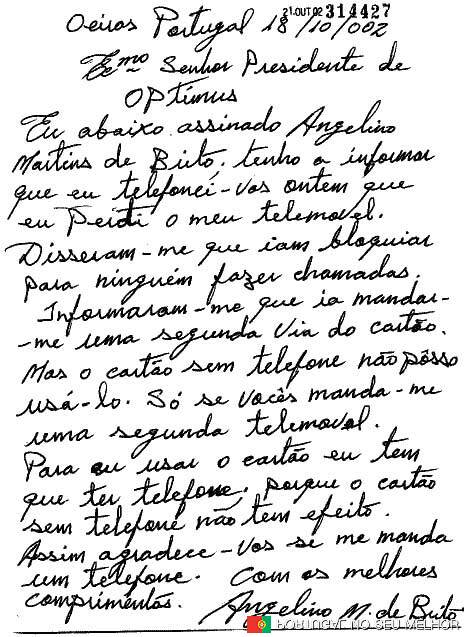 21.OUT 02 314427
Oeiras Portugal 18/10/002
Exmo Senhor Presidente de
OPtimus
Eu abaixo assinado Angelino
Martins de Brito. tenho a informar
que eu telefonei-vos ontem que
eu Perdi o meu telemovel.
Disseram-me que iam bloquiar
para ninguém fazer chamadas.
Informaram-me que ia mandar-
-me uma segunda via do cartão.
Mas o cartão sem telefone não pósso
usá-lo. Só se vocês manda-me
uma segunda telemovel.
Para eu usar o cartão eu tem
que ter telefone, porque o cartão
sem telefone não tem efeito.
Assim agradece-vos se me manda
um telefone. Com os melhores
comprimentos. Angelino M. de Brito
PORTUGAL NO SEU MELHOR